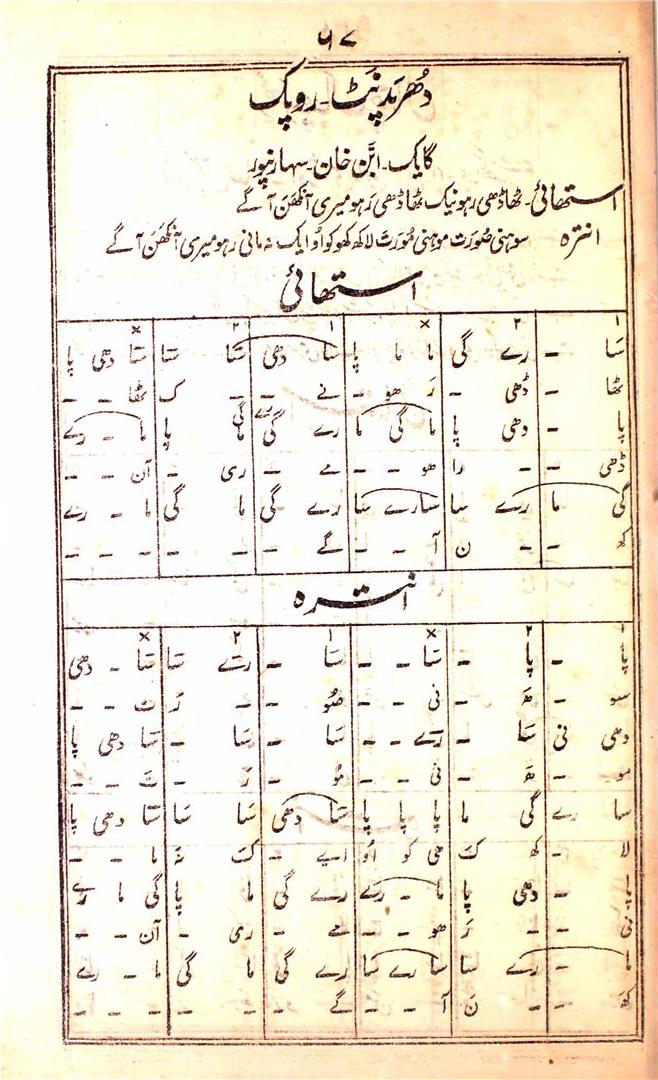 ۵۷
دُھرپد پَنٹ - روپک
گایک - ابّن خان - سہارنپور
استھائی - ٹھاڈھی رہو نیک ٹھاڈھی رَہو میری آنکھَن آگے
انترہ سوہنی صُورَت موہنی مُورَت لاکھ کھو کو اُو ایک نہ مانی رہو میری آنکھَن آگے
استھائی
۱ ۲ × ۱ ۲ ×
سَا - رے گی ما ما پا سَا دھی سَا سَا سَا دھی پا
ٹھا - ڈھی - رَ ھو - نے - - ک ٹھا - -
پا - دھی پا ما گی ما رے گی رے گی ما پا ما - رے
ڈھی - - را ھو - - مے - ری - آن - -
گی ما رے سا سا رے سا رے گی ما گی ما - رے
کھ - - ن آ - - گے - - - - - -
انترہ
۱ ۲ × ۱ ۲ ×
پا - پا - سَا - - سَا - رے سَا سَا - دھی
سو - ھَ - نی - - صُو - - رَ ت - -
دھی نی سَا - رے - - سَا - سَا - سَا دھی پا
مو - ھَ - نی - - مُو - رَ - تَ - -
سا رے گی ما پا پا پا سَا دھی سَا سَا سَا دھی پا
لا - کھ کَ ھی کو اُو اے - کَ نَ ما - -
پا - دھی پا ما - رے رے گی ما پا گی ما رے
نی - - رَ ھو - - مے - ری - آن - -
ما - رے سا سا رے سا رے گی ما گی ما - رے
کھ - - نَ آ - - گے - - - - - -